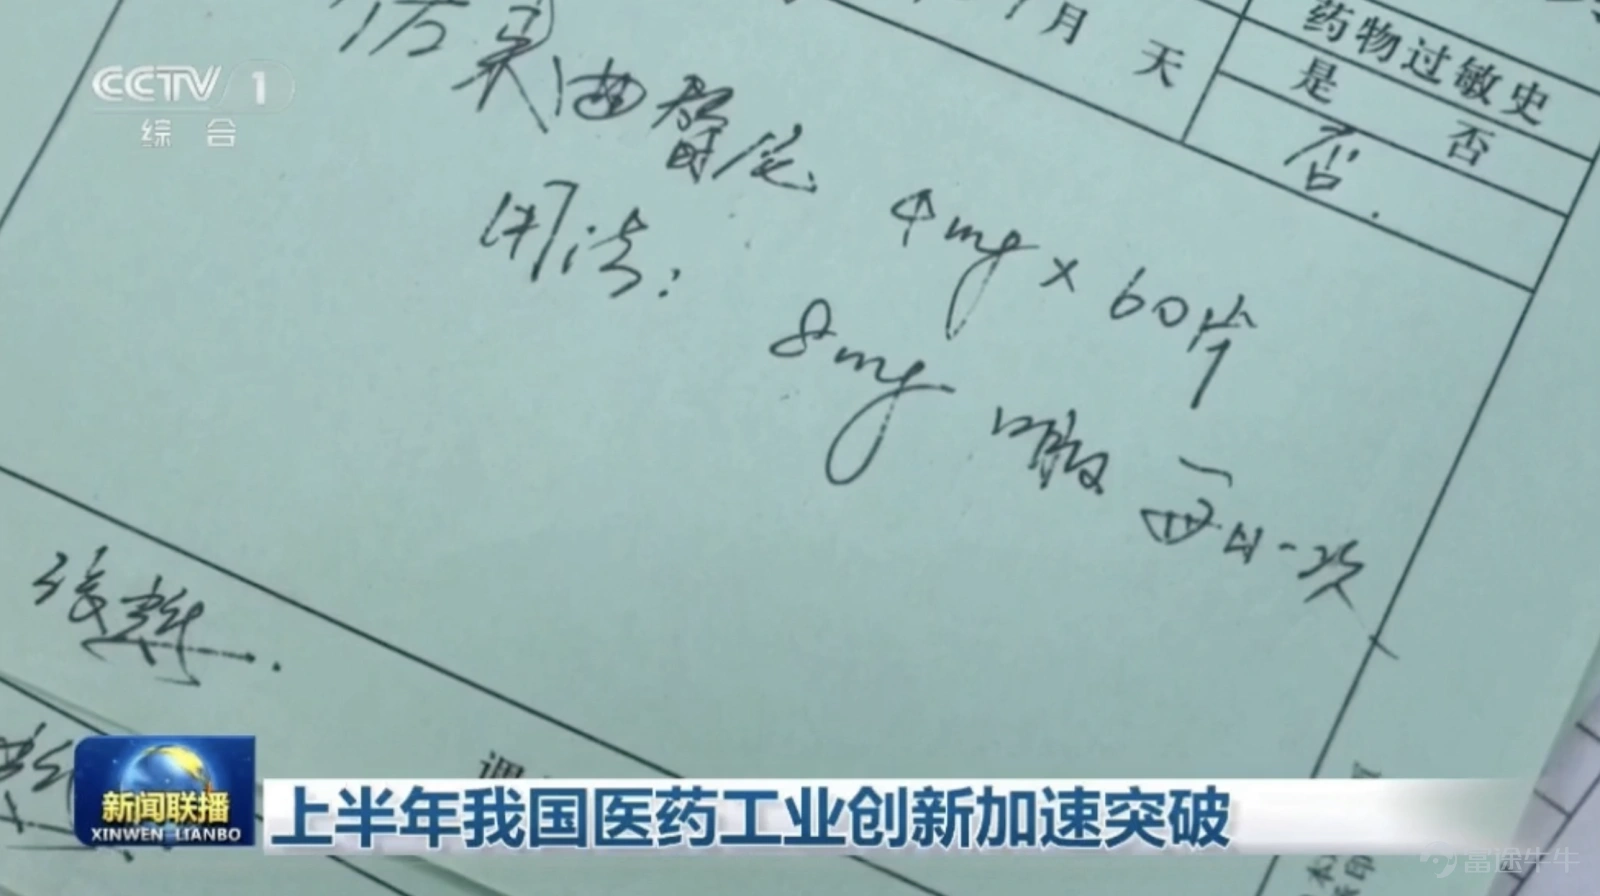 月 天
药物过敏史
是 否
否.
CCTV 1
综合
替尼 4mg × 60片
用法:
8mg 口服 每日一次
张
调
新闻联播
XINWEN LIANBO
上半年我国医药工业创新加速突破
富途牛牛